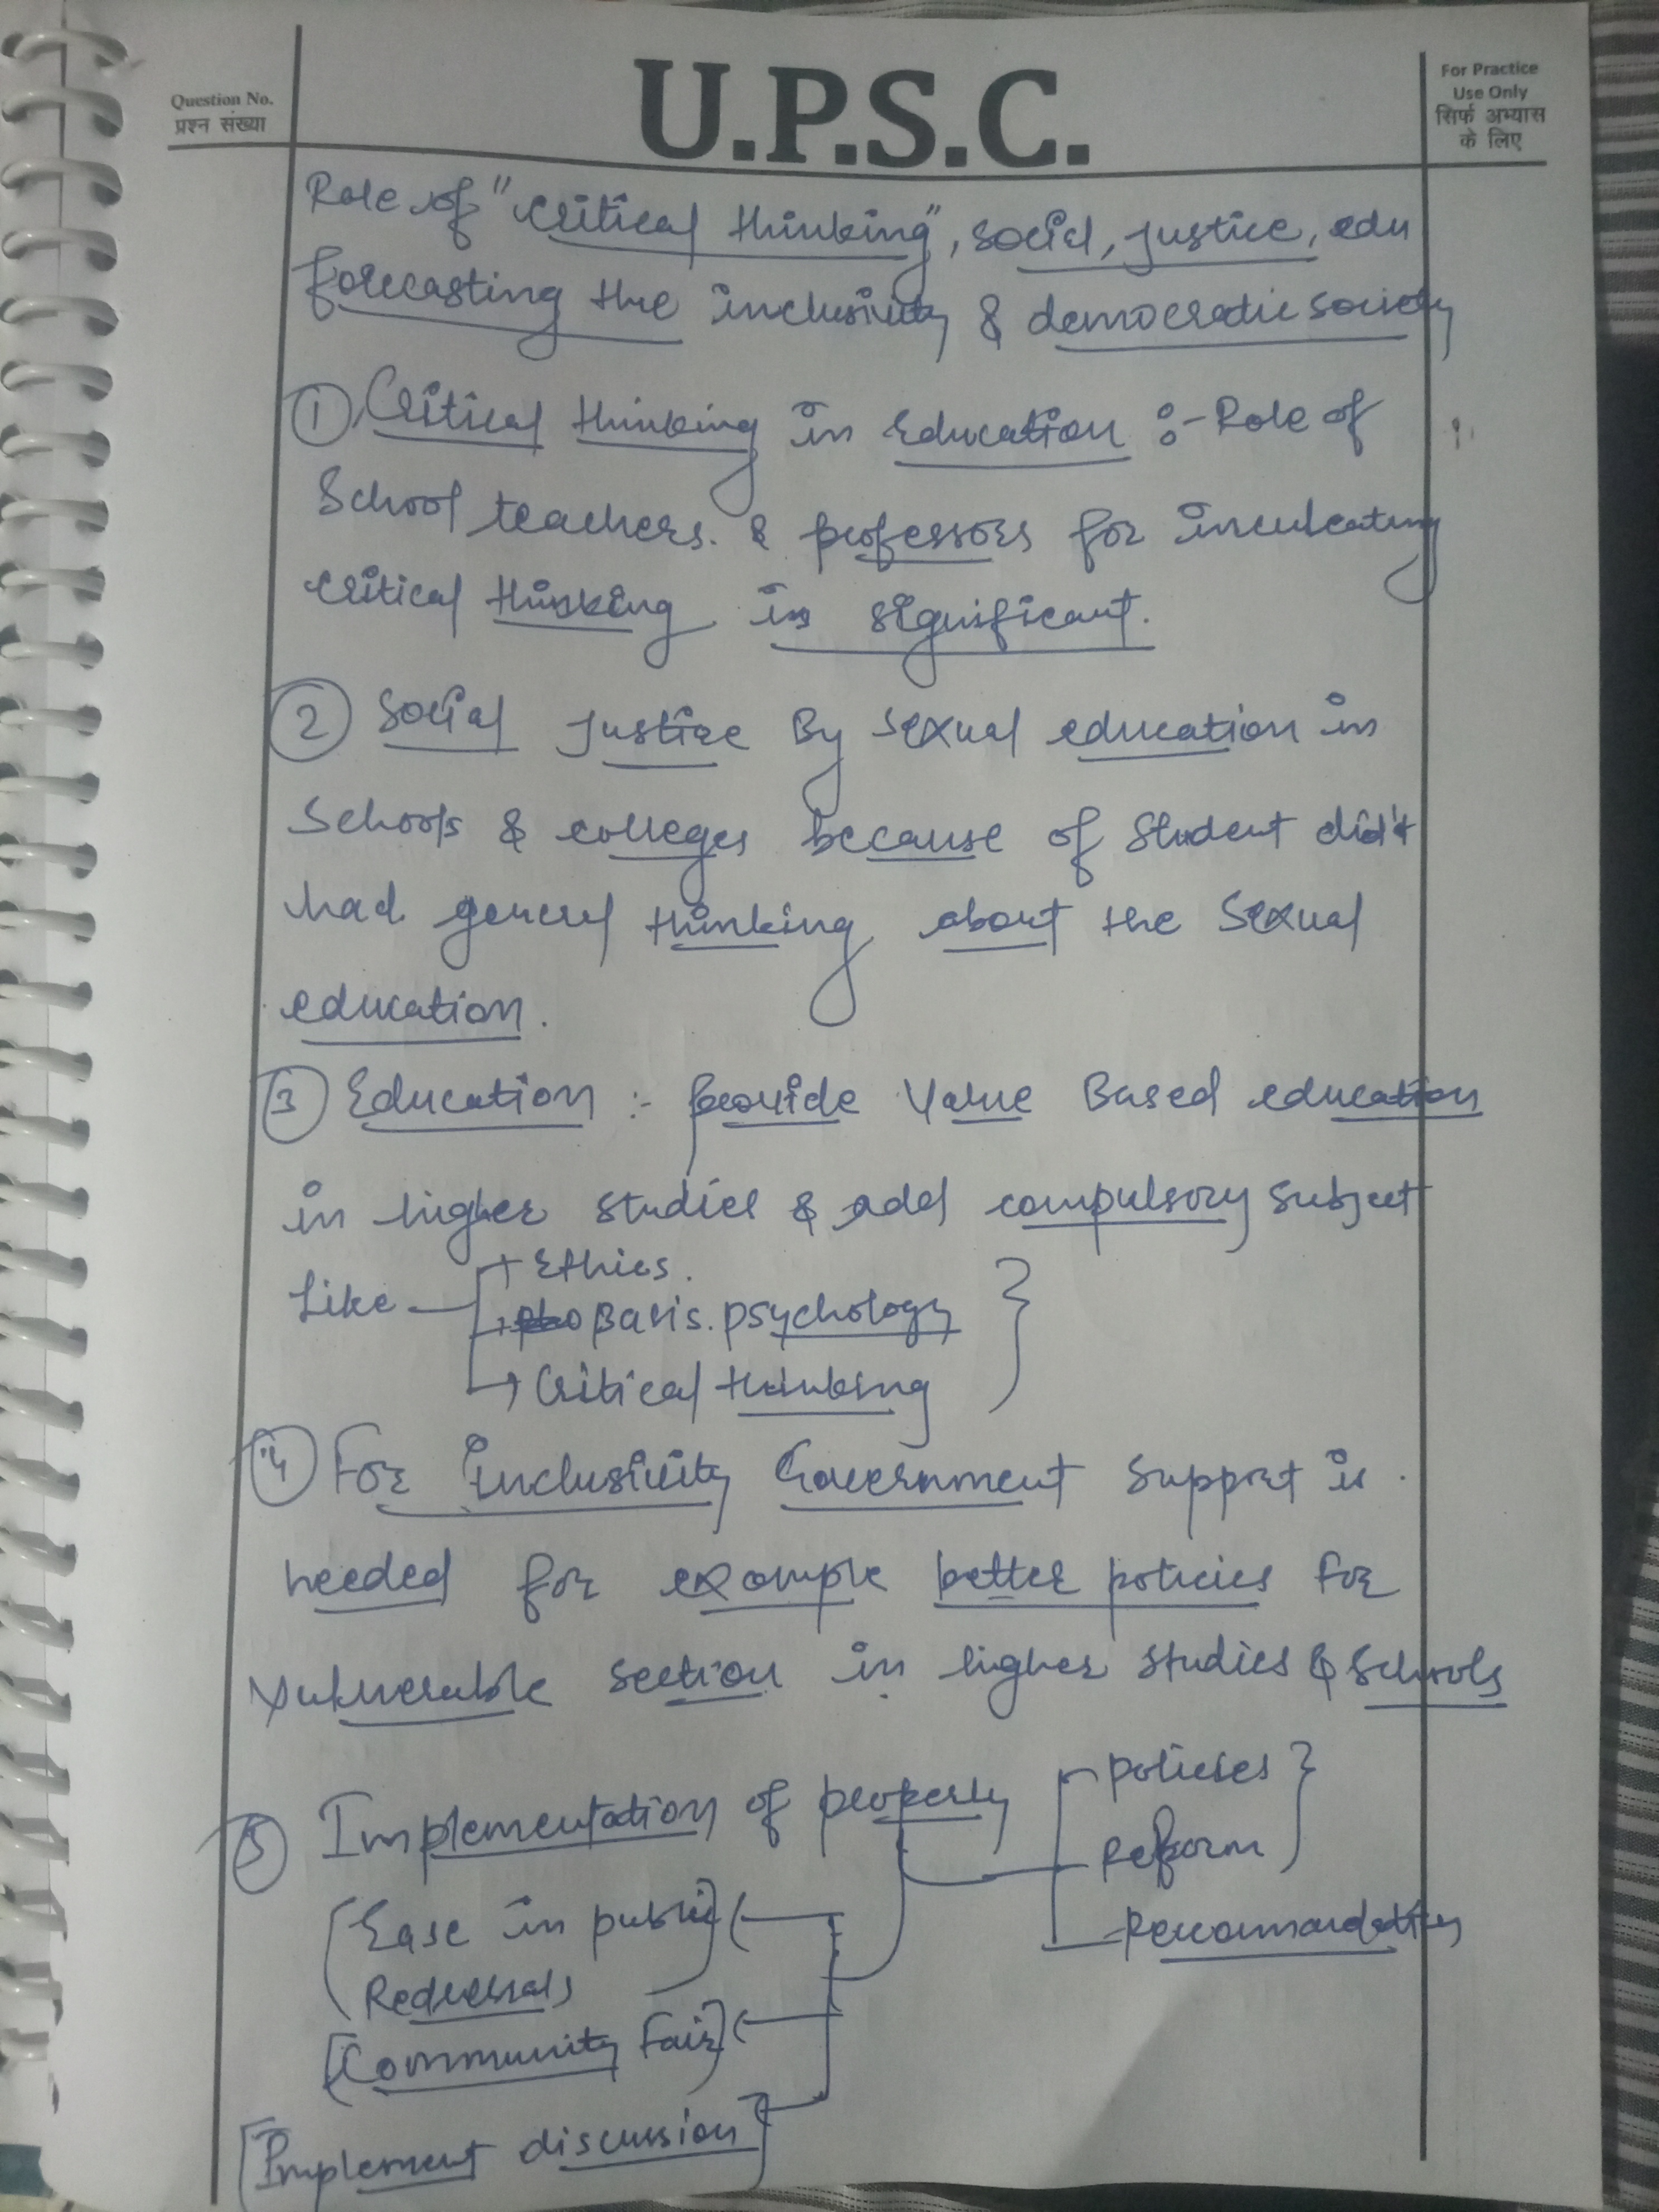 Question No.
प्रश्न संख्या
U.P.S.C.
For Practice
Use Only
सिर्फ अभ्यास
के लिए
Role of "Critical thinking", social, justice, edu
forecasting the inclusivity & democratic society
① Critical thinking in Education :- Role of
School teachers. & professors for inculcating
critical thinking is significant.
② Social Justice By Sexual education in
Schools & colleges because of Student did't
had general thinking about the Sexual
education.
③ Education :- provide Value Based education
in higher studies & add compulsory subject
Like → Ethics.
→ Basis. psychology }
→ Critical thinking
④ For inclusivity Government support is
needed for example better policies for
vulnerable section in higher studies & Schools
⑤ Implementation of properly policies }
Reform
Recommandation
[Ease in public]
Redressals
[Community Fair]
[Implement discussion]